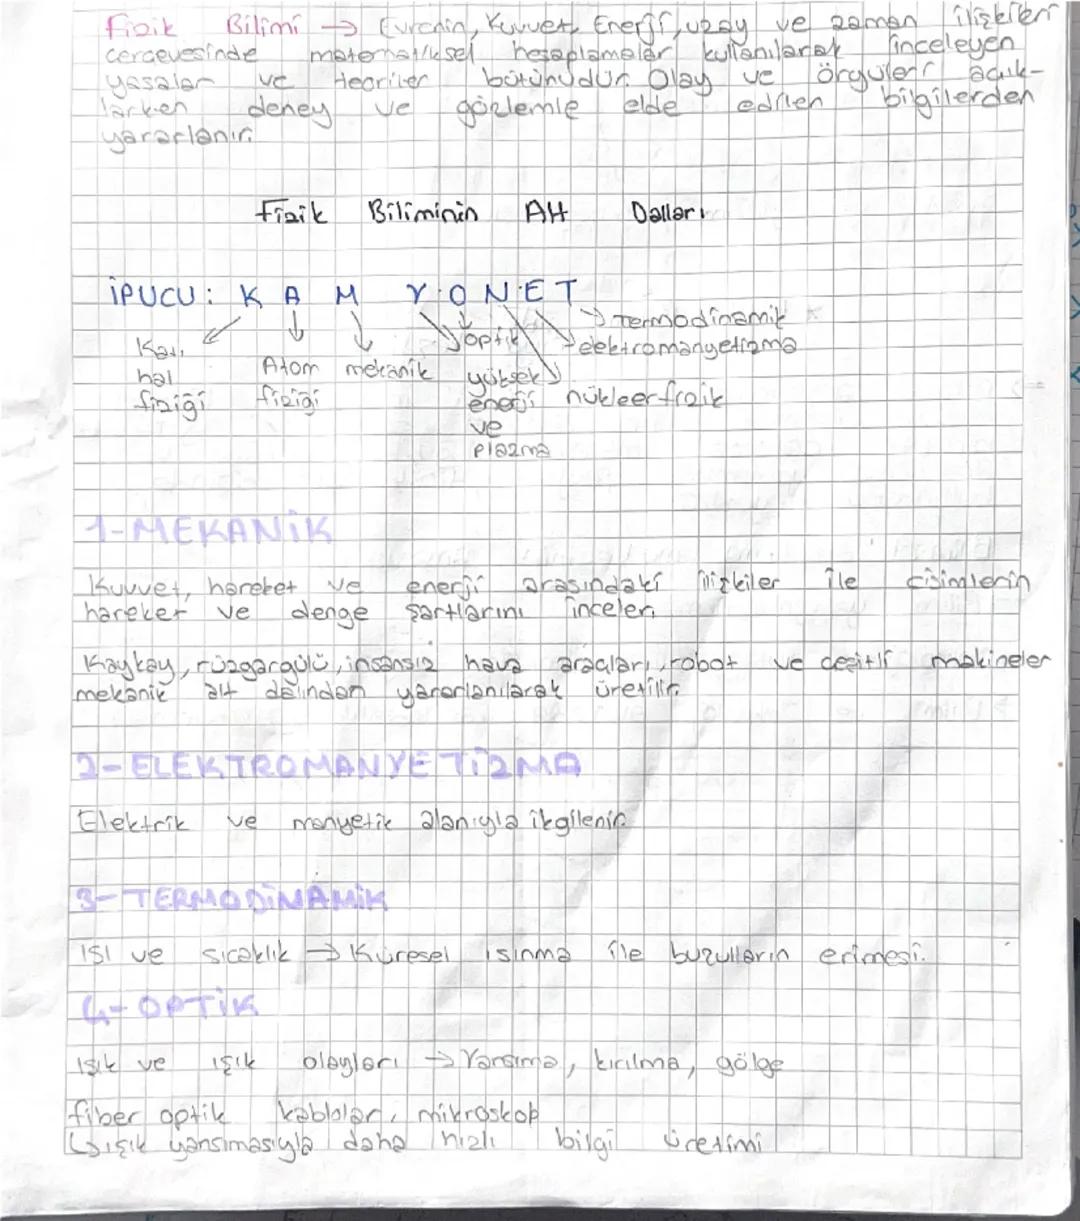 Fizik Bilimi → Evrenin, Kuvvet, Enerji, uzay ve zaman ilişkileri
çerçevesinde matematiksel hesaplamalar kullanılarak inceleyen
yasalar ve teoriler bütünüdür. Olay ve örgüleri açık-
larken deney ve gözlemle elde edilen bilgilerden
yararlanır.
Fizik Biliminin Alt Dalları
İPUCU: K A M Y O N E T
Katı hal fiziği
Atom fiziği
mekanik
yüksek enerji ve plazma
optik
nükleer fizik
elektromanyetizma
Termodinamik
1-MEKANİK
Kuvvet, hareket ve enerji arasındaki ilişkiler ile cisimlerin
hareket ve denge şartlarını inceler.
Kaykay, rüzgargülü, insansız hava araçları, robot ve çeşitli makineler
mekanik alt dalından yararlanılarak üretilir.
2-ELEKTROMANYETİZMA
Elektrik ve manyetik alanıyla ilgilenir.
3-TERMODİNAMİK
ISI ve sıcaklık → Küresel ısınma ile buzulların erimesi.
4-OPTİK
Işık ve ışık olayları → Yansıma, kırılma, gölge
fiber optik kablolar, mikroskop
↳ışık yansımasıyla daha hızlı bilgi üretimi